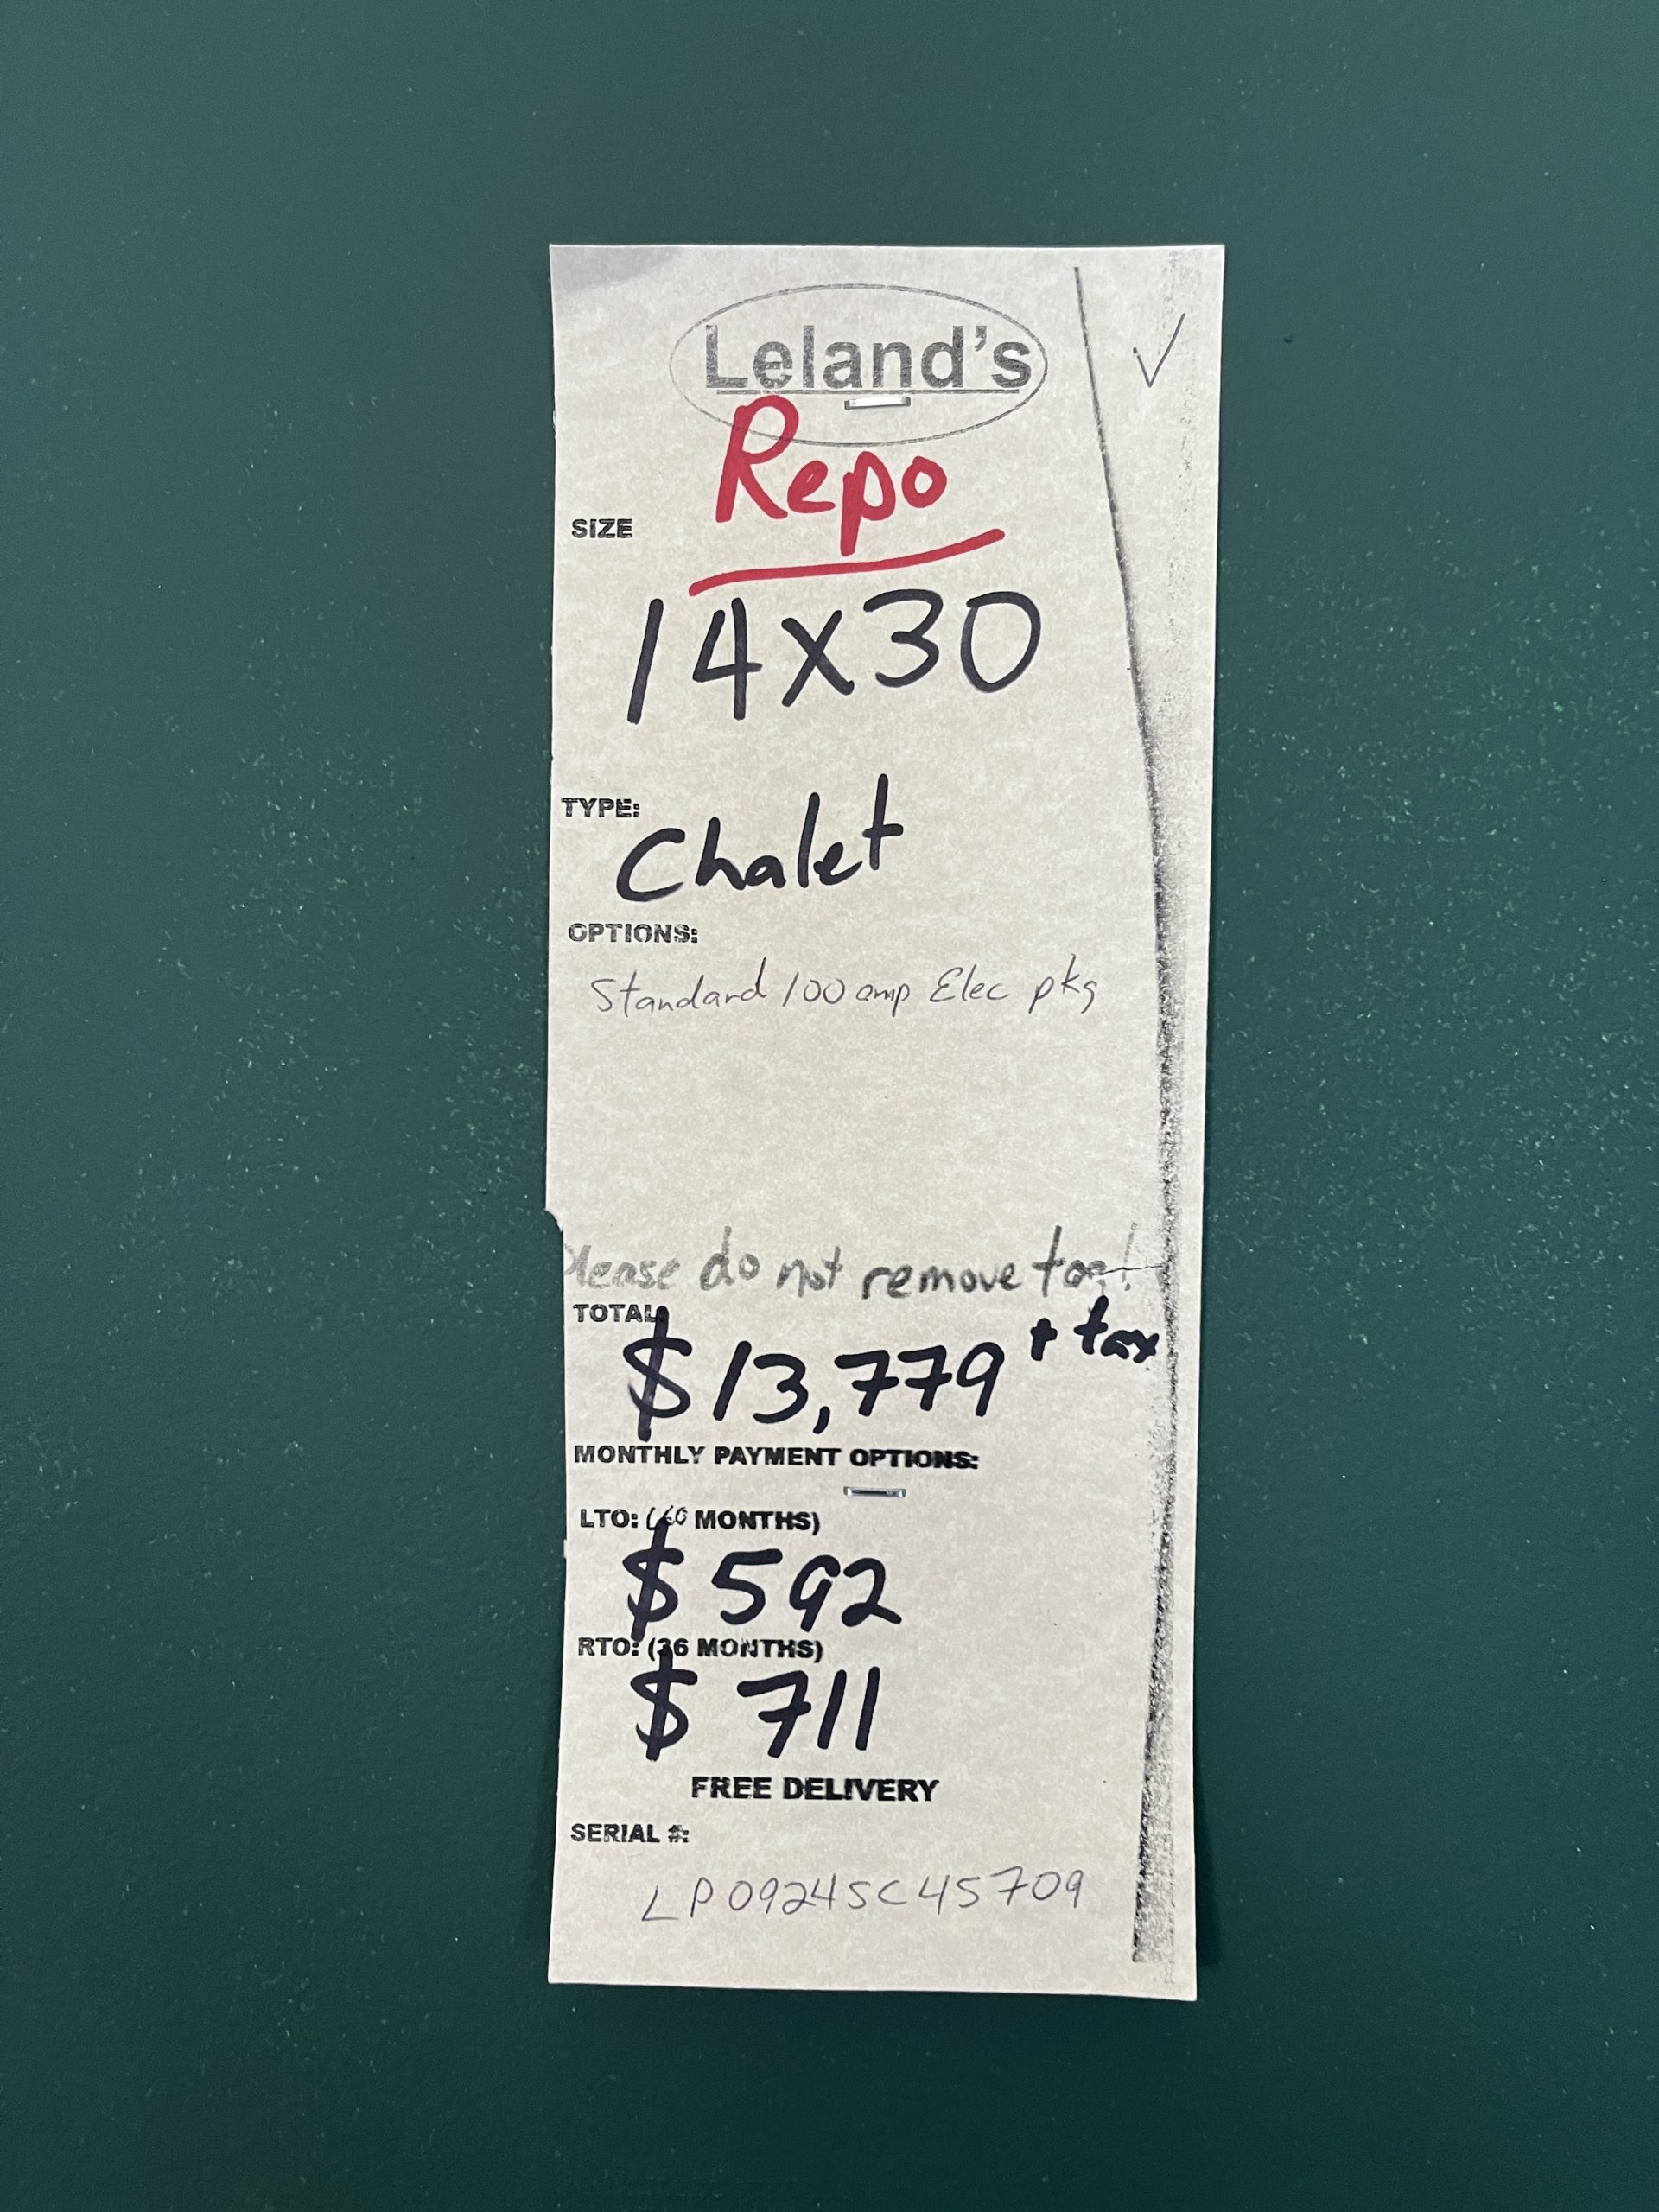 Leland's
Repo
SIZE
14x30
TYPE:
Chalet
OPTIONS:
Standard 100 amp Elec pkg
Please do not remove tag!
TOTAL:
$13,779 + tax
MONTHLY PAYMENT OPTIONS:
LTO: (60 MONTHS)
$592
RTO: (36 MONTHS)
$711
FREE DELIVERY
SERIAL #:
LP0924SC45709